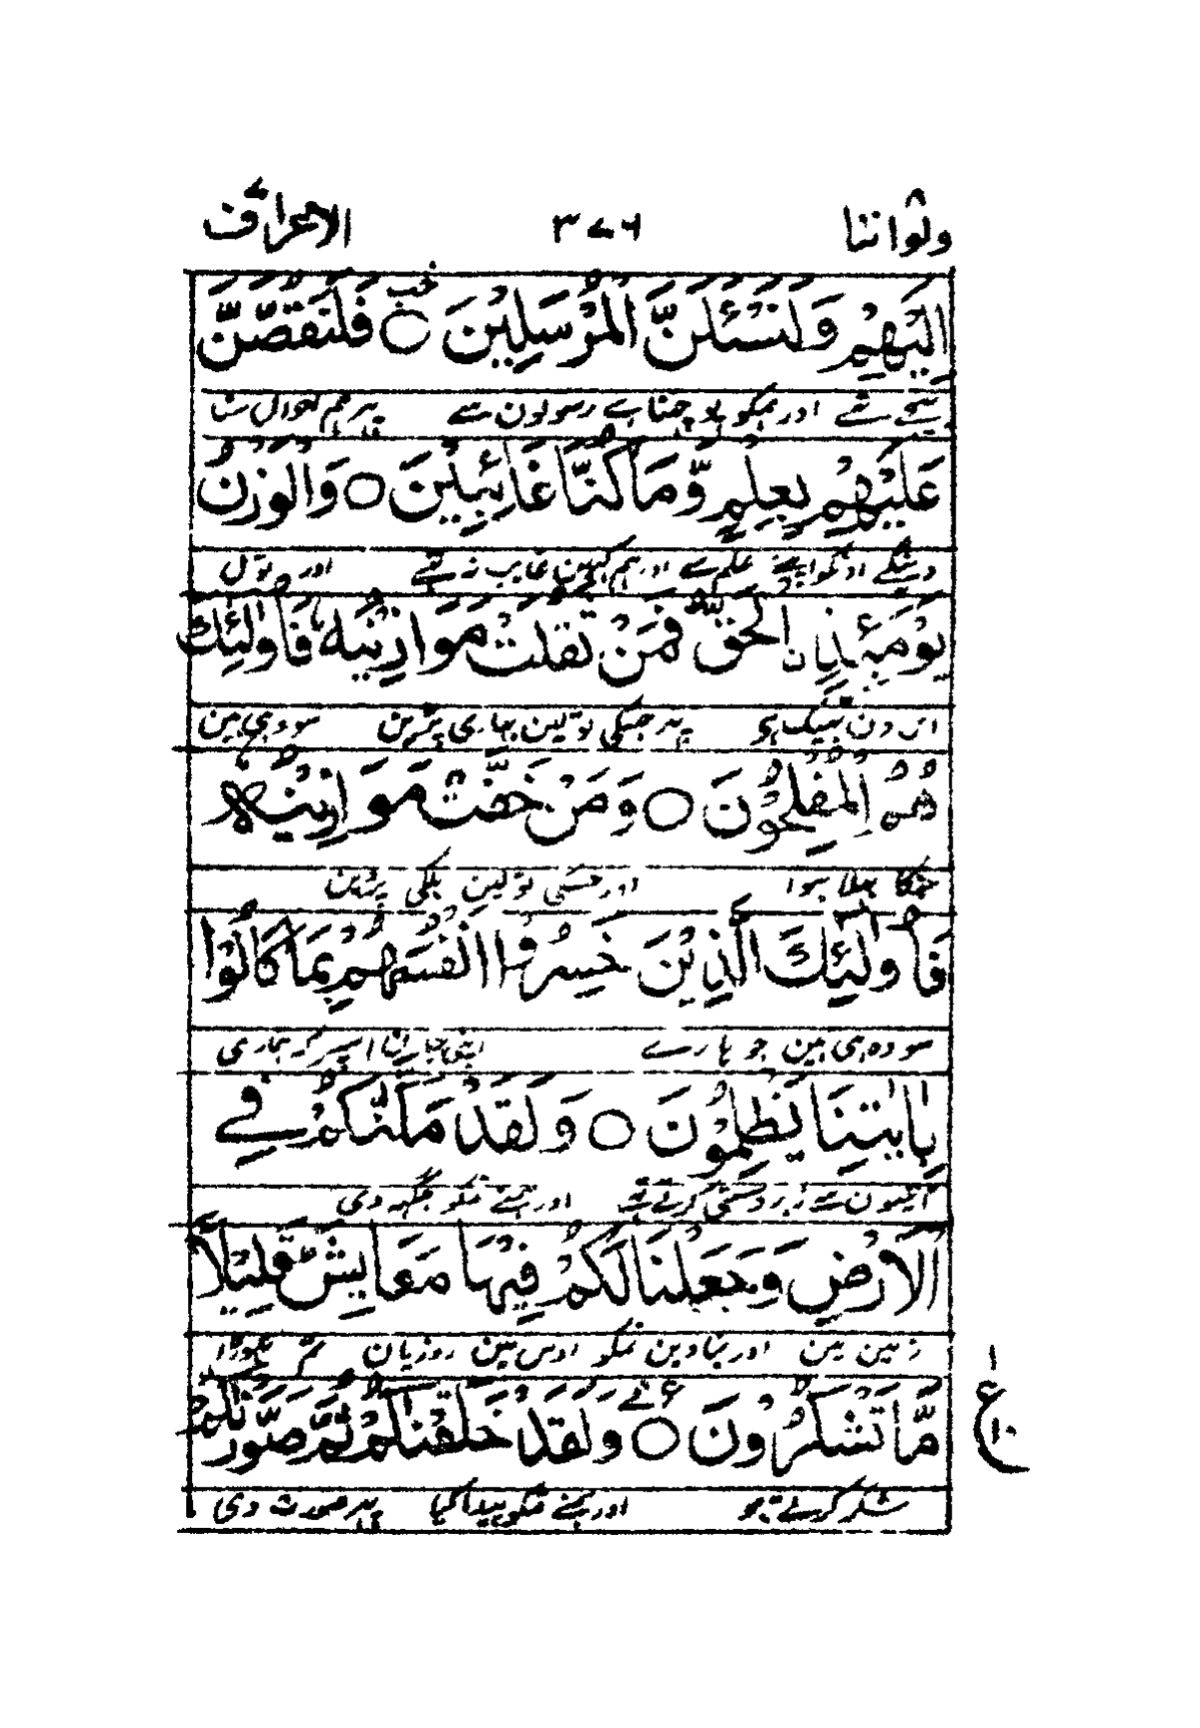 ولواننا ٨ ٣٧٦ الاعراف ٧
اِلَيْهِمْ وَلَنَسْـَٔلَنَّ الْمُرْسَلِيْنَ ○ فَلَنَقُصَّنَّ
بھیجے تھے اور ہمکو پوچھنا ہے رسولون سے پہر ہم احوال سنا
عَلَيْهِمْ بِعِلْمٍ وَّمَا كُنَّا غَآئِبِيْنَ ○ وَالْوَزْنُ
دینگے اونکو اپنے علم سے اور ہم کہین غایب نہ تھے اور تول
يَوْمَئِذِ ࣙالْحَقُّ فَمَنْ ثَقُلَتْ مَوَازِيْنُهٗ فَاُولٰٓئِكَ
اس دن ٹھیک ہی پہر جسکی تولین بہاری پڑین سو وہی ہین
هُمُ الْمُفْلِحُوْنَ ○ وَمَنْ خَفَّتْ مَوَازِيْنُهٗ
جنکا بھلا ہوا اور جسکی تولین ہلکی پڑین
فَاُولٰٓئِكَ الَّذِيْنَ خَسِرُوْٓا اَنْفُسَهُمْ بِمَا كَانُوْا
سو وہ ہی ہین جو ہارے اپنی جان اسپر کہ ہماری
بِاٰيٰتِنَا يَظْلِمُوْنَ ○ وَلَقَدْ مَكَّنّٰكُمْ فِي
آیتون سے زبردستی کرتے تھے اور ہمنے تمکو جگہہ دی
الْاَرْضِ وَجَعَلْنَا لَكُمْ فِيْهَا مَعَايِشَ قَلِيْلًا
زمین مین اور بنا دین تمکو اوس مین روزیان تم تھوڑا
مَّا تَشْكُرُوْنَ ○ وَلَقَدْ خَلَقْنٰكُمْ ثُمَّ صَوَّرْنٰكُمْ
شکر کرتے ہو اور ہمنے تمکو پیدا کیا پہر صورت دی
١ ع ١٠